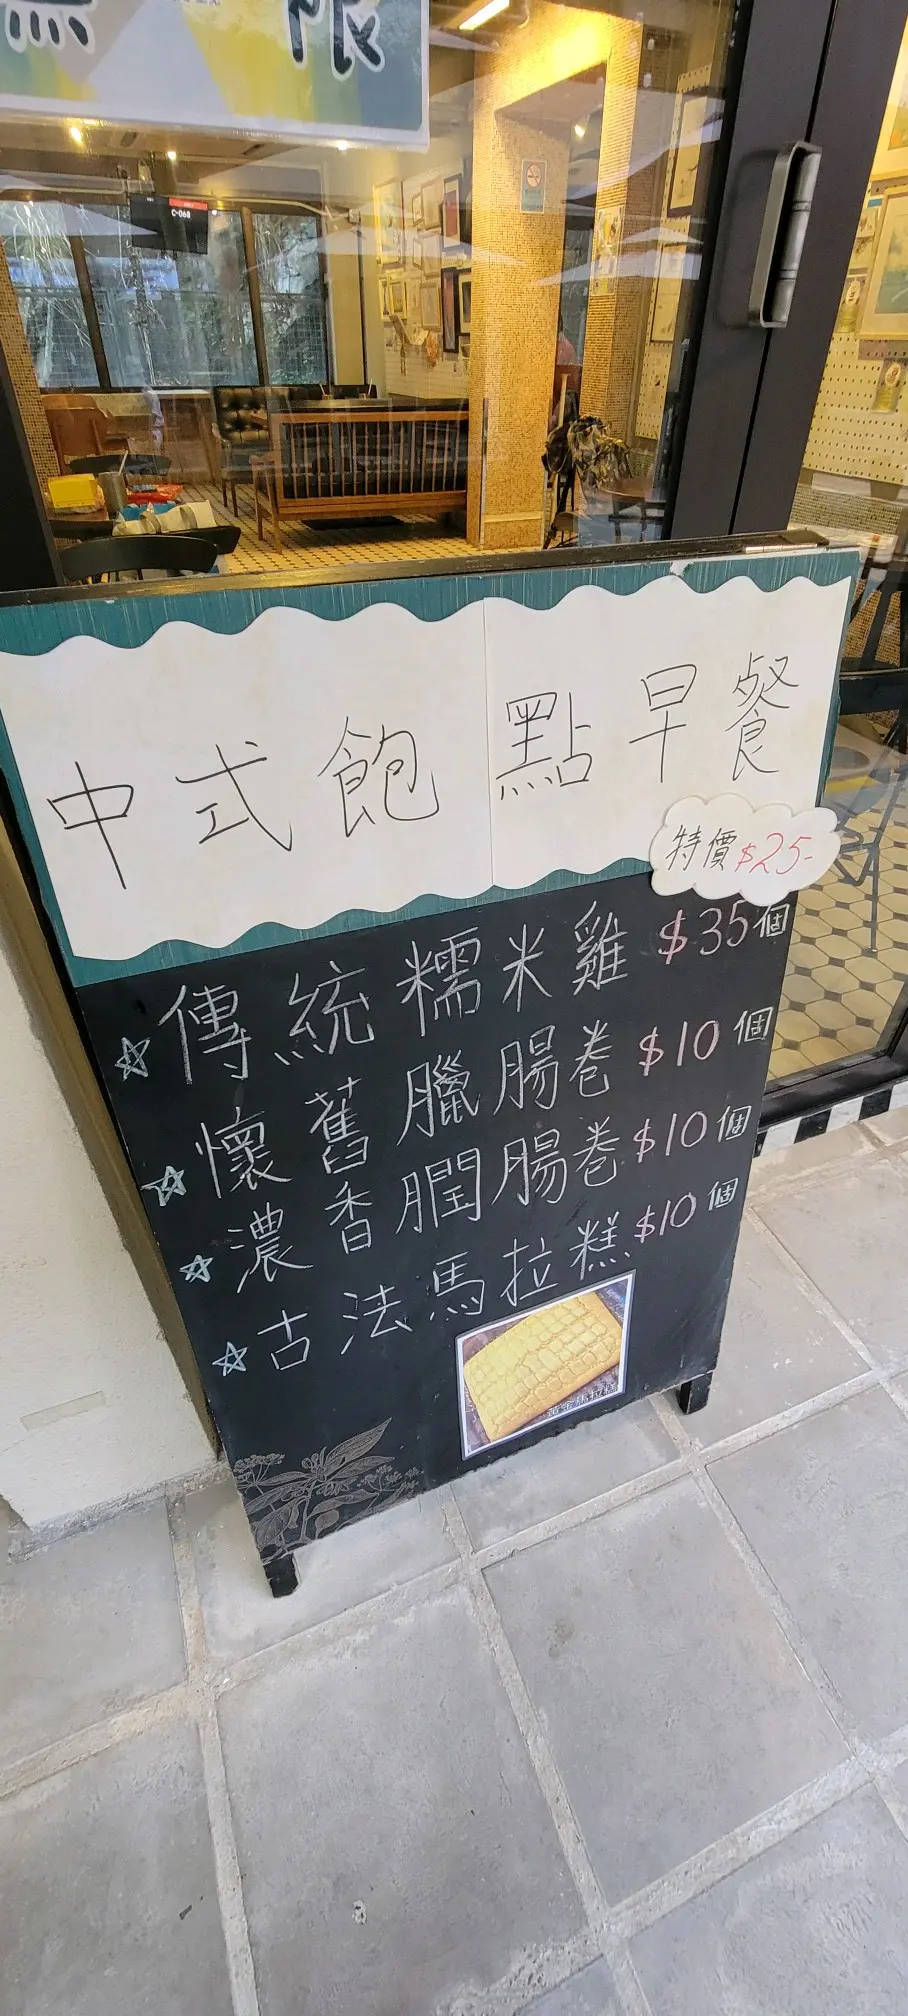 限
C-068
中式飽點早餐
特價$25-
傳統糯米雞 $35個
懷舊臘腸卷 $10個
濃香膶腸卷 $10個
古法馬拉糕 $10個
黃金馬拉糕